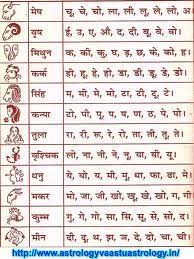 मेष चू, चे, चो, ला, ली, लू, ले, लो, अ।
वृष ई, उ, ए, ओ, वा, वी, वू, वे, वो।
मिथुन क, की, कु, घ, ङ, छ, के, को, ह।
कर्क ही, हू, हे, हो, डा, डी, डू, डे, डो।
सिंह म, मी, मू, मे, मो, टा, टी, टू, टे।
कन्या टो, प, पी, पू, ष, ण, ठ, पे, पो।
तुला रा, री, रू, रे, रो, ता, ती, तू, ते।
वृश्चिक तो, ना, नी, नू, ने, नो, या, यी, यू।
धनु ये, यो, भ, भी, भू, धा, फा, ढ़ा, भे।
मकर भो, जा, जी, खी, खू, खे, खो, ग, गी।
कुम्भ गु, गे, गो, सा, सि, सू, से, सो, द।
मीन दी, दू, थ, झ, ञ, दे, दो, चा, ची।
http://www.astrologyvaastuastrology.in/